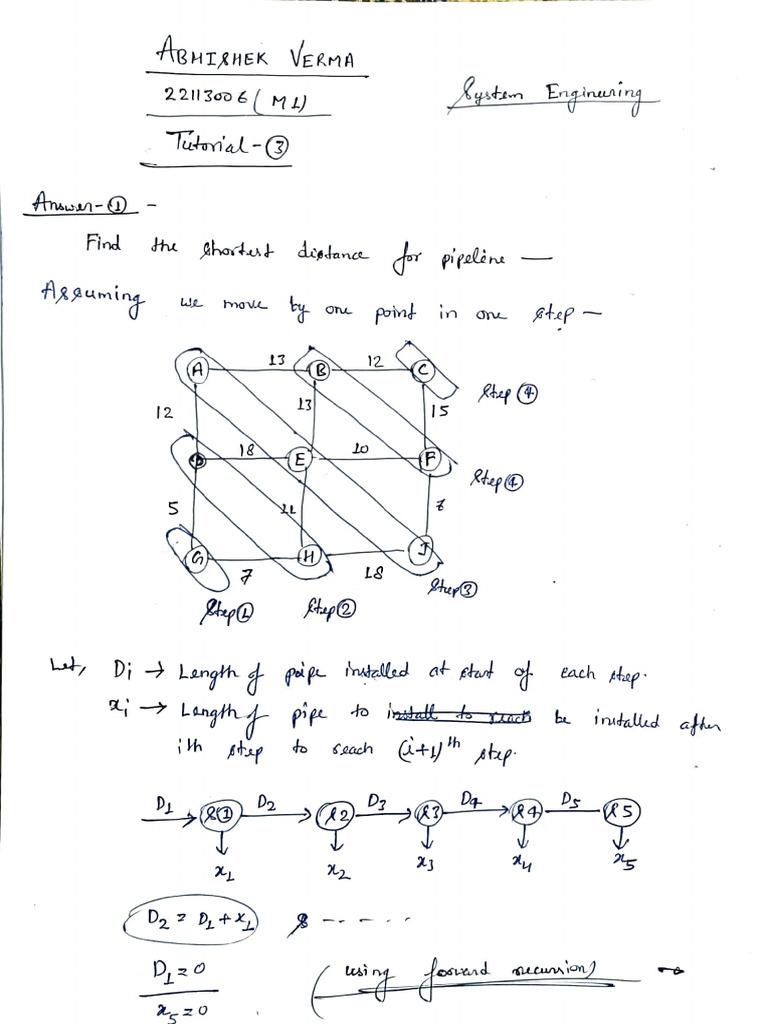 ABHISHEK VERMA
22113006 (M1)
System Engineering
Tutorial-③
Answer-① -
Find the shortest distance for pipeline —
Assuming we move by one point in one step —
A 13 B 12 C
Step ④
12 13 15
18 E 10 F
Step ④
5 11
G 7 H 18 I
Step ① Step ② Step ③
Let, Di → Length of pipe installed at start of each step.
xi → Length of pipe to be installed after
ith step to reach (i+1)th step.
D1 S① D2 S2 D3 S3 D4 S4 D5 S5
x1 x2 x3 x4 x5
D2 = D1 + x1 & - - - - -
D1 = 0 (using forward recursion)
x5 = 0